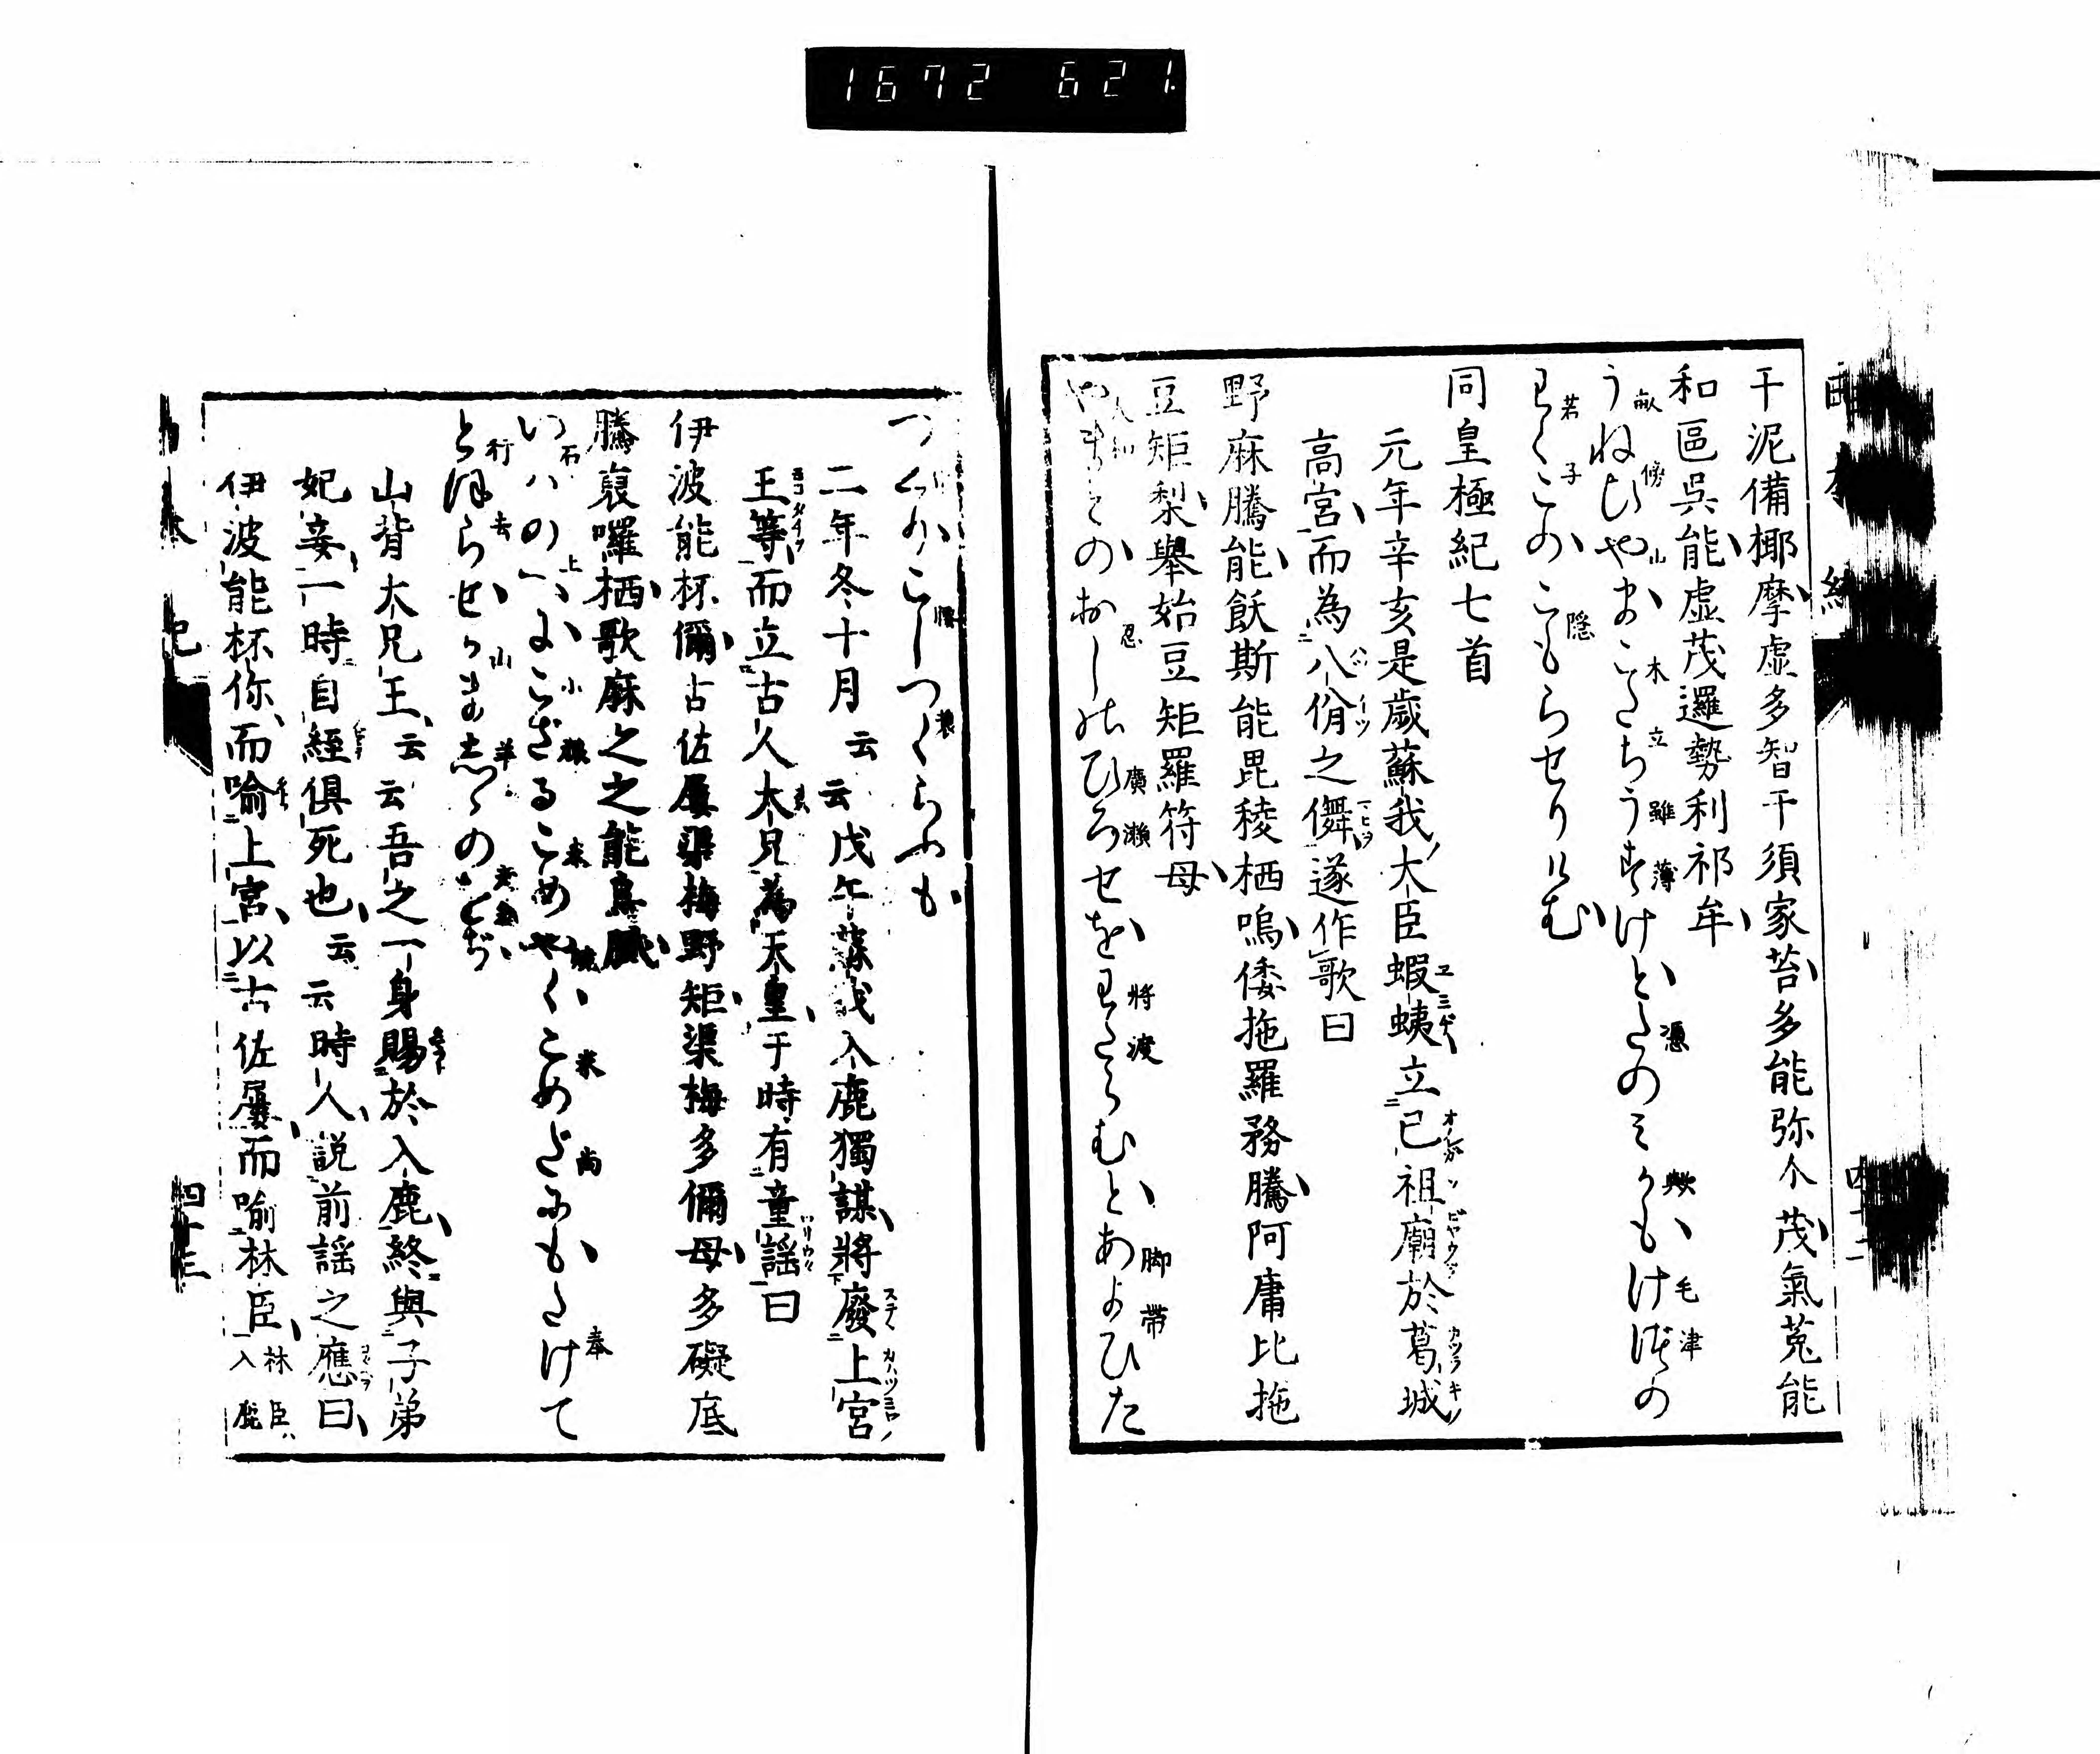 1672 621.
干泥備椰摩虚多智干須家苔多能弥介茂氣菟能
和區呉能虚茂邏勢利祁牟
うねひやまこたちうすけとたのみかもけつの
わくこのこもらせりけむ
同皇極紀七首
元年辛亥是歳蘇我大臣蝦蛦立已祖廟於葛城
高宮而為八佾之儛遂作歌曰
野麻騰能飫斯能毘稜栖嗚倭拖羅務騰阿庸比拖
豆矩梨擧始豆矩羅符母
やまとのおしのひろせをわたらむとあよひた
つくりこしつくらふも
二年冬十月云云戊午蘇我入鹿獨謀將廢上宮
王等而立古人大兄為天皇于時有童謡曰
伊波能杯儞古佐屢渠梅野矩渠梅多儞母多礙底
騰裒囉栖歌麻之之能烏膩
いはのへにこざるこめやくこめだにもたげて
とほらせかましゝのをぢ
山背大兄王云云吾之一身賜於入鹿終與子弟
妃妾一時自經俱死也云云時人説前謡之應曰
伊波能杯你而喻上宮以古佐屢而喻林臣林臣入鹿
四十三